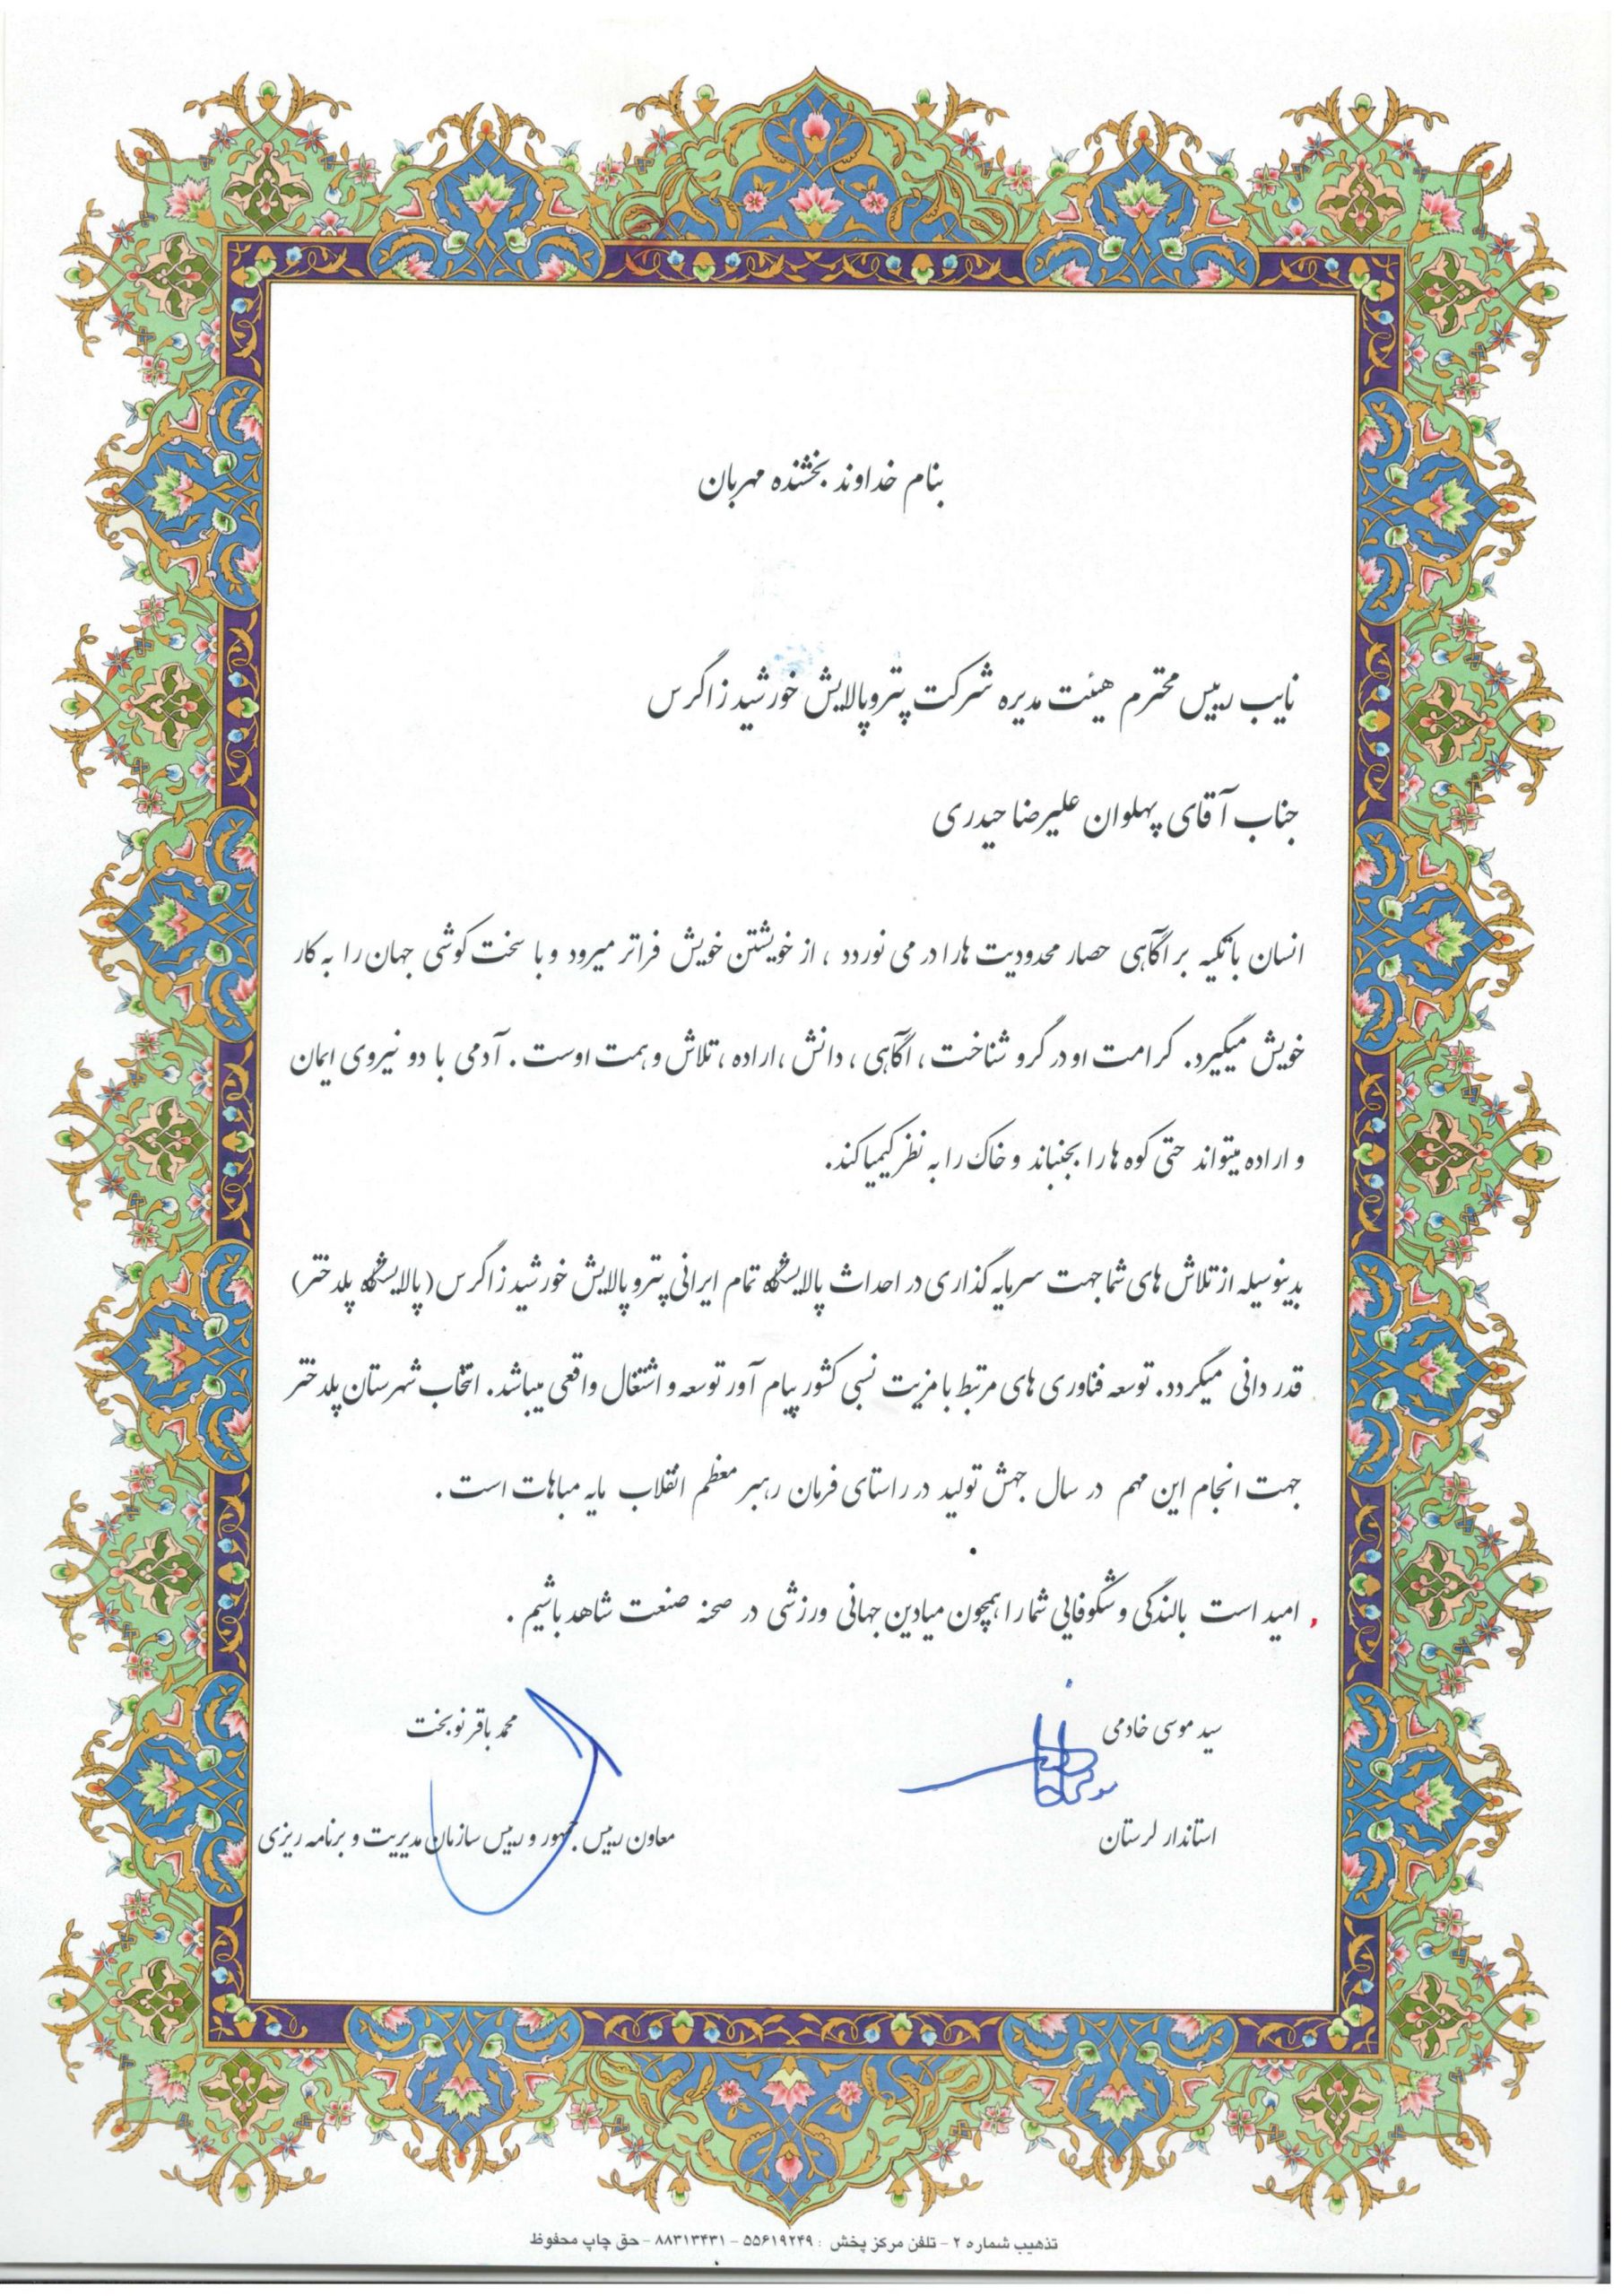 بنام خداوند بخشنده مهربان
نایب رییس محترم هیئت مدیره شرکت پتروپالایش خورشید زاگرس
جناب آقای پهلوان علیرضا حیدری
انسان با تکیه بر آگاهی حصار محدودیت ها را در می نوردد ، از خویشتن خویش فراتر میرود و با سخت کوشی جهان را به کار
خویش میگیرد. کرامت او در گرو شناخت ، آگاهی ، دانش ،اراده ، تلاش و همت اوست . آدمی با دو نیروی ایمان
و اراده میتواند حتی کوه ها را بجنباند و خاک را به نظر کیمیا کند.
بدینوسیله از تلاش های شما جهت سرمایه گذاری در احداث پالایشگاه تمام ایرانی پترو پالایش خورشید زاگرس (پالایشگاه پلدختر)
قدر دانی میگردد. توسعه فناوری های مرتبط با مزیت نسبی کشور پیام آور توسعه و اشتغال واقعی میباشد. انتخاب شهرستان پلدختر
جهت انجام این مهم در سال جهش تولید در راستای فرمان رهبر معظم انقلاب مایه مباهات است .
امید است بالندگی و شکوفایی شما را همچون میادین جهانی ورزشی در صحنه صنعت شاهد باشیم .
سید موسی خادمی
محمد باقر نوبخت
استاندار لرستان
معاون رییس جمهور و رییس سازمان مدیریت و برنامه ریزی
تذهیب شماره ۲ - تلفن مرکز پخش : ۵۵۶۱۹۲۴۹ - ۸۸۳۱۳۴۳۱ - حق چاپ محفوظ